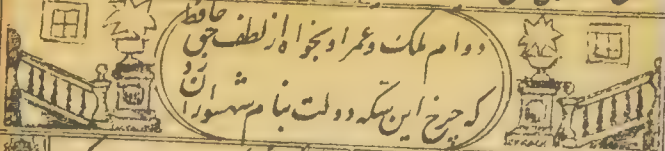 دوام ملک و عمر او بخواه از لطف حق حافظ
که چرخ این سکه دولت بنام شهسواران زد